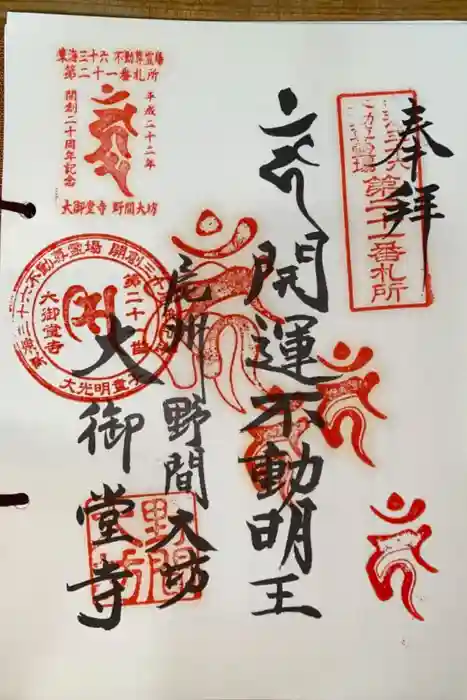 奉拝
第二十一番札所
開運不動明王
尾州 野間大坊
大御堂寺
東海三十六不動尊霊場
第二十一番札所
平成二十二年
開創二十周年記念
大御堂寺 野間大坊
三十六不動尊霊場 開創三十
第二十一
大御堂寺
野間
大坊